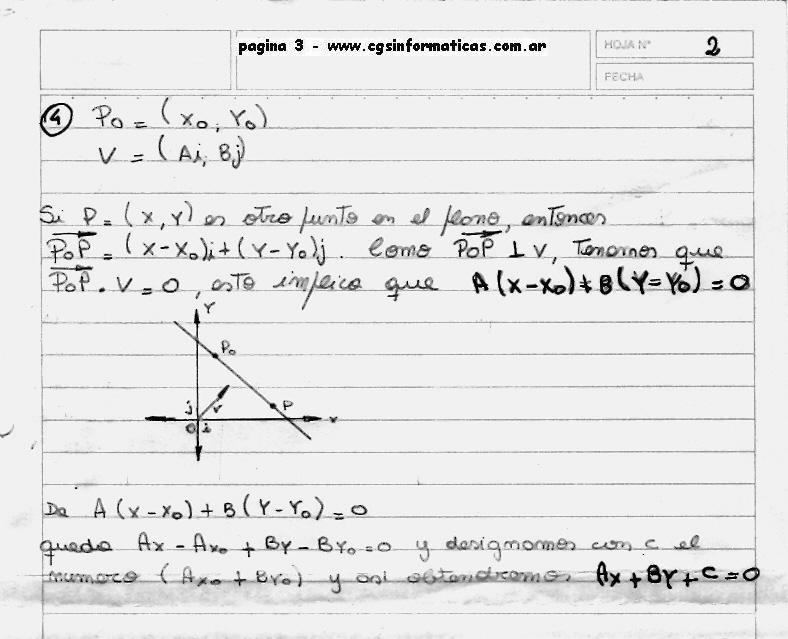 pagina 3 - www.cgsinformaticas.com.ar
HOJA N° 2
FECHA
4 P₀ = (x₀, Y₀)
V = (Ai, Bj)
Si P = (x, Y) es otro punto en el plano, entonces
P₀P = (x-x₀)i+(Y-Y₀)j. Como P₀P ⊥ V, Tenemos que
P₀P . V = 0, esto implica que A(x-x₀)+B(Y=Y₀)=0
Y
P₀
j v P
0 i x
De A(x-x₀)+B(Y-Y₀)=0
queda Ax-Ax₀+BY-BY₀=0 y designamos con c el
numero (Ax₀+BY₀) y asi obtendremos Ax+BY+C=0